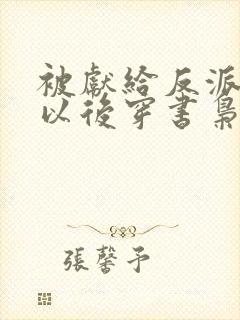 被獻給反派
以後穿書梟
張馨予